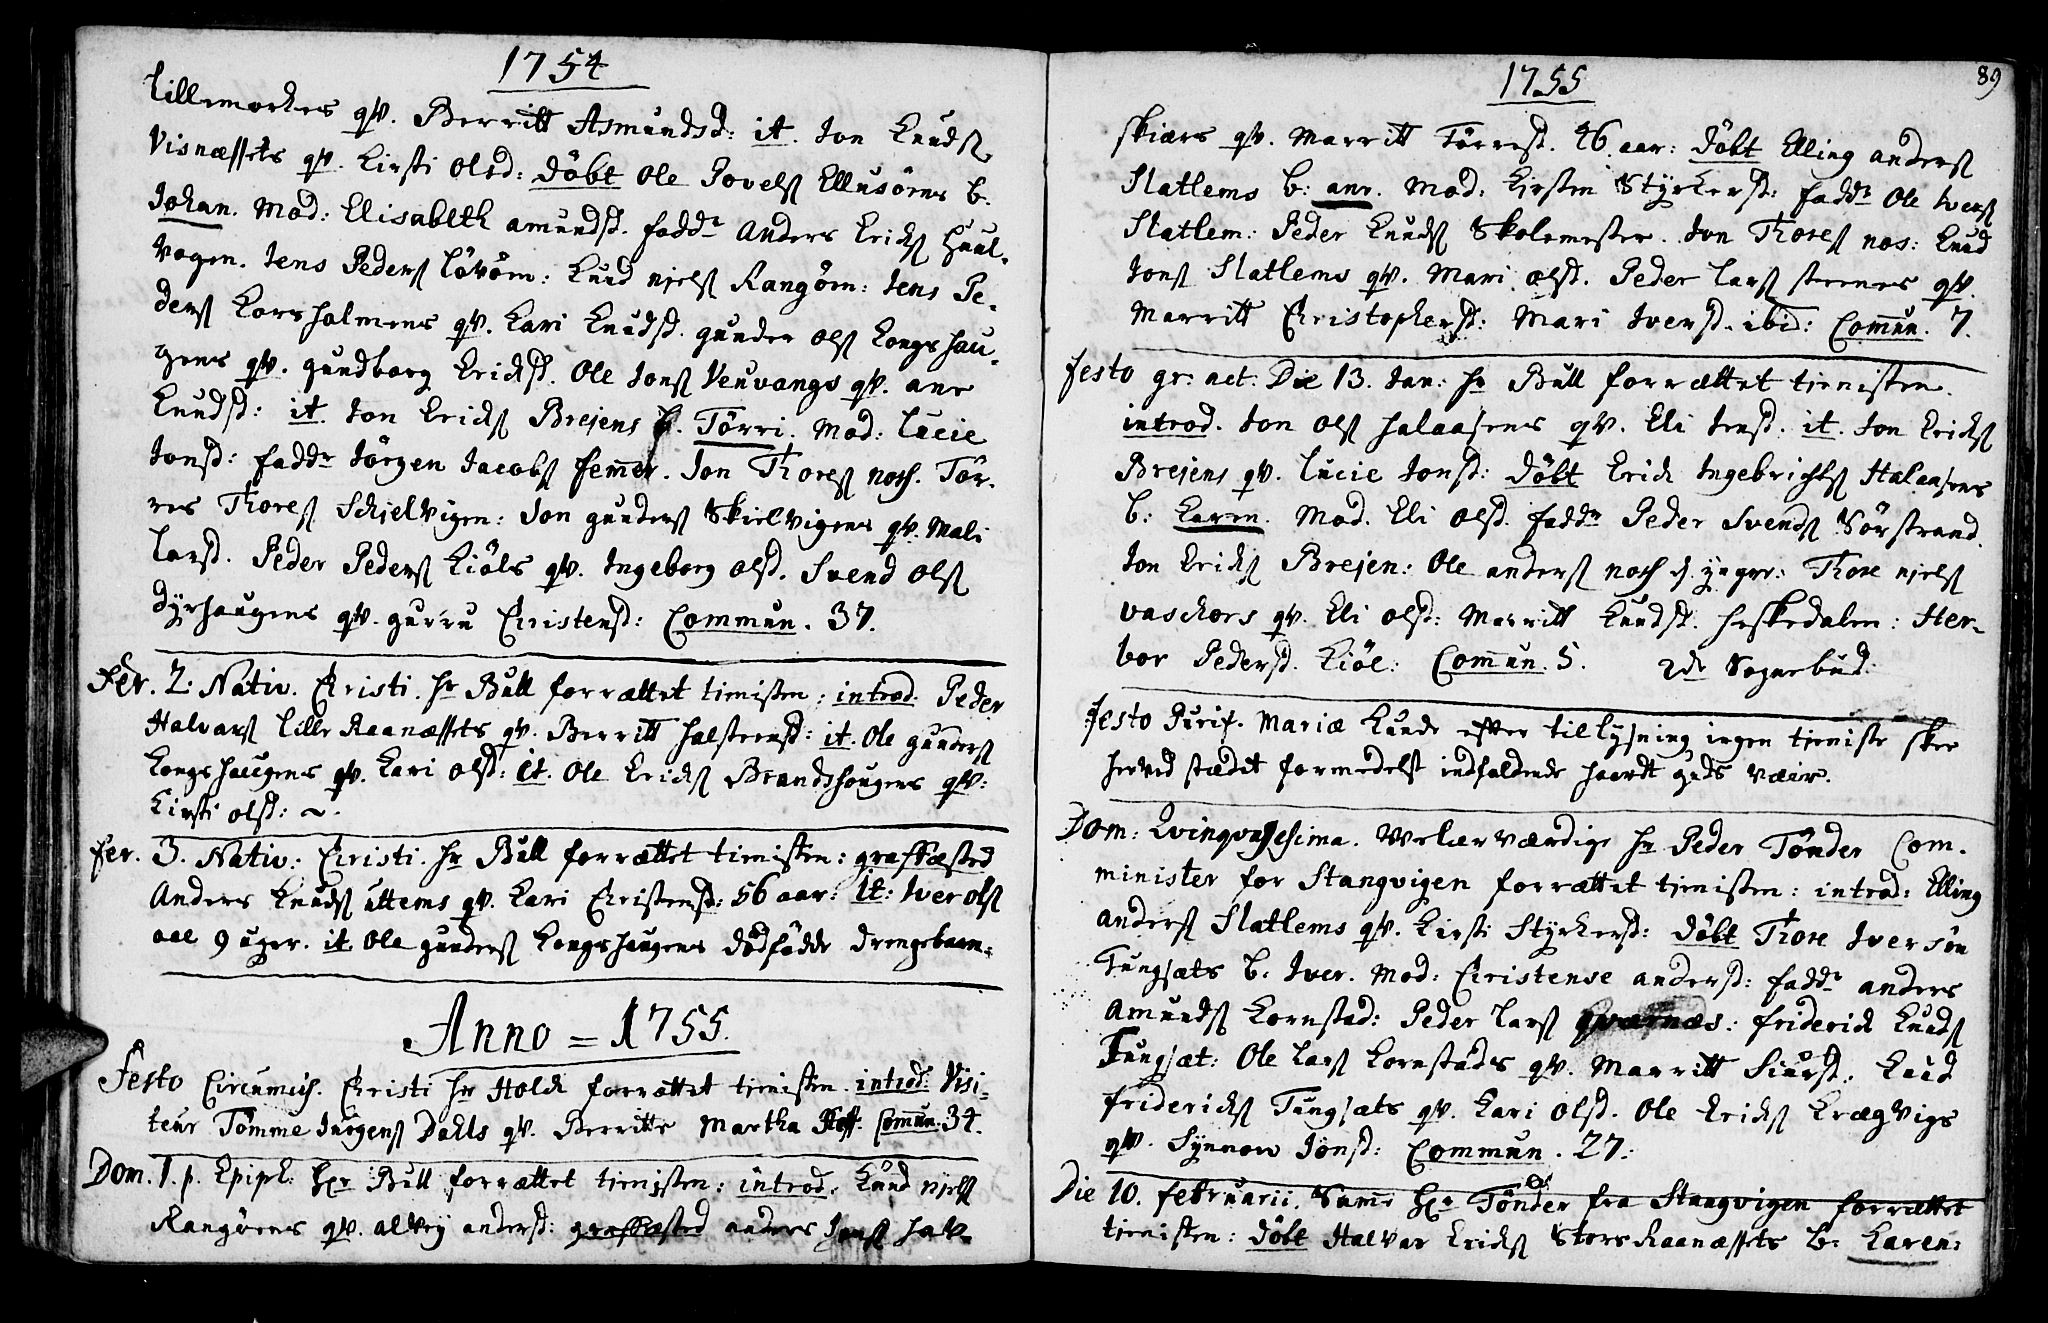 1754
Lillemorkens qv. Berritt Asmundsd: it. Jon Knuds
Visnæssets qv. Kirsti Olsd: Döbt Ole Povels Ellusörns b.
Johan. Mod: Elisabeth amundsd. fadd.r Anders Erichs Huul-
vogen. Jens Peders Lövörn: Knud Njels Rangörn: Jens Pe-
ders Korsholmens qv. Kari Knudsd. gunder Ols Kongshau-
gens qv. gundborg Erichsd. Ole Jons Veuvangs qv. ane
Knudsd: it. Jon Erichs Brejens b. Törri. Mod: Lucie
Jonsd: fadd.r Jörgen Jacobs femmer. Jon Thores nosh. Tör-
res Thores Schjelvigen: Jon gunders Skielvigens qv. Mali
Larsd. Peder Peders Kiöls qv. Ingeborg Olsd. Svend Ols
Dyrhaugens qv. gurru Christensd: Commun. 37.
Fer. 2. Nativ. Christi. Hr Bull forrættet tienisten: introd. Peder
Halvars Lille Raanæssets qv. Berritt Halsteensd: it. Ole gunders
Kongshaugens qv. Kari Olsd: it. Ole Erichs Brandshougens qv:
Kirsti Olsd: ~.
Fer. 3. Nativ: Christi. Hr Bull forrættet tienisten: grafkæsted
Anders Knuds uttems qv. Kari Christensd: 56 aar: it: Iver Ols
aae 9 uger. it. Ole gunders Kongshaugens dödfödde drengebarn.
Anno = 1755.
Festo Circumcis. Christi Hr Holck forrættet tienisten. introd: Visi-
teur Tömme Jürgens Dahls qv. Berritte Martha Hoff. Commun. 34.
Dom. 1. p. Epiph: Hr Bull forrættet tienisten: introd. Knud Njels
Rangörns qv. alvey andersd: grafkæsted anders Jens Hav-
1755
89
skiærs qv. Marritt Törresd. 46 aar: Döbt Elling anders
Slatlems b: ane. Mod: Kirsten Styrkersd: fadd.r Ole Ivers
Slatlem: Peder Knuds Skolemester. Jon Thores nos: Knud
Jons Slatlems qv. Mari Olsd. Peder Lars steenes qv.
Marritt Christophersd: Mari Iversd. ibid: Commun. 7.
Festo gr: act: Die 13. Jan: Hr Bull forrættet tienisten.
introd. Jon Ols Halaasens qv. Eli Jensd. it. Jon Erichs
Brejens qv. Lucie Jonsd: Döbt Erich Ingebrichts Halaasens
b: Karen. Mod. Eli Olsd. fadd.r Peder Svends Sörstrand.
Jon Erichs Brejen: Ole anders nosh d. yngre: Thore Njels
vaskors qv. Eli Olsd: Marritt Knudsd. Heskedalen: Her-
bor Pedersd. Kiöl: Commun. 5. 2de Sognebud:
Festo Purif. Mariæ Kunde efter tillysning ingen tieniste skee
herved stædet formedelst indfaldende haardt guds væir.
Dom: Qvinqvagesima. Velærværdige Hr Peder Tönder Com-
minister for Stangvigen forrættet tienisten: introd: Elling
anders Slatlems qv. Kirsti Styrkersd: Döbt Thore Iversön
Tungsæts b. Iver. Mod: Christense andersd: fadd.r anders
Amunds Kornstad: Peder Lars Qværnæs: friderich Knuds
Tungsæt: Ole Lars Kornstads qv. Marritt Siursd. Knud
friderichs Tungsæts qv. Kari Olsd. Ole Erichs Krægvigs
qv. Synnow Jönsd: Commun. 27.
Die 10. februarii. Samme Hr Tönder fra Stangvigen forrættet
tienisten: Döbt Halvar Erichs Store Raanæssets b. Karen: